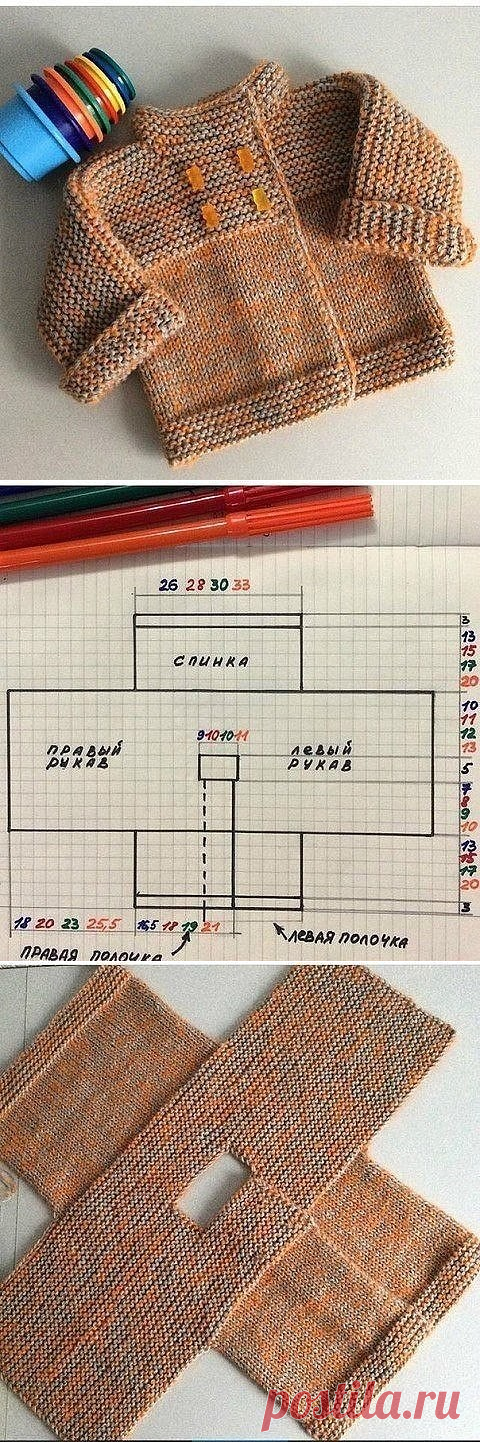 26 28 30 33
3
13
15
17
20
СПИНКА
10
11
12
13
9 10 10 11
ПРАВЫЙ
РУКАВ
ЛЕВЫЙ
РУКАВ
5
7
8
9
10
13
15
17
20
18 20 23 25,5
16,5 18 19 21
3
ПРАВАЯ ПОЛОЧКА
ЛЕВАЯ ПОЛОЧКА
postila.ru